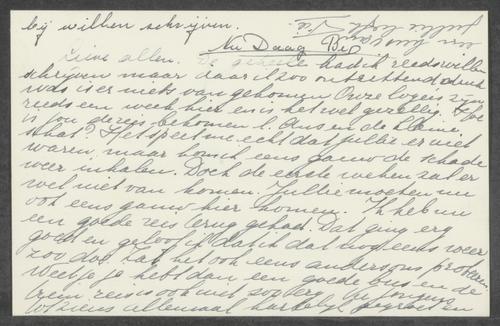 bij willen schrijven.
Nu Daag Bep
Lieve allen. De geheele had ik reeds willen
schrijven maar daar ik zoo ontzettend druk
was is er niets van gekomen Onze logeés zijn
reeds een week hier en is het wel gezellig. Hoe
is jou de reis bekomen t. Ans en de kleine
schat? Het speet me echt dat jullie er niet
waren, maar hoor ik eens gauw de schade
weer inhalen. Doch de eerste weken zal er
wel niet van komen. Jullie moeten nu
ook eens gauw hier komen. Ik heb nu
een goede reis terug gehad. Dat ging erg
goed en geloof ik dat ik dat nog eens weer
zoo doe, zal het ook eens andersom probeeren
Weet je je hebt dan een goede bus en de
trein reis is ook niet zoo ver. Nu jongens
tot ziens allemaal hartelijk gegroet en